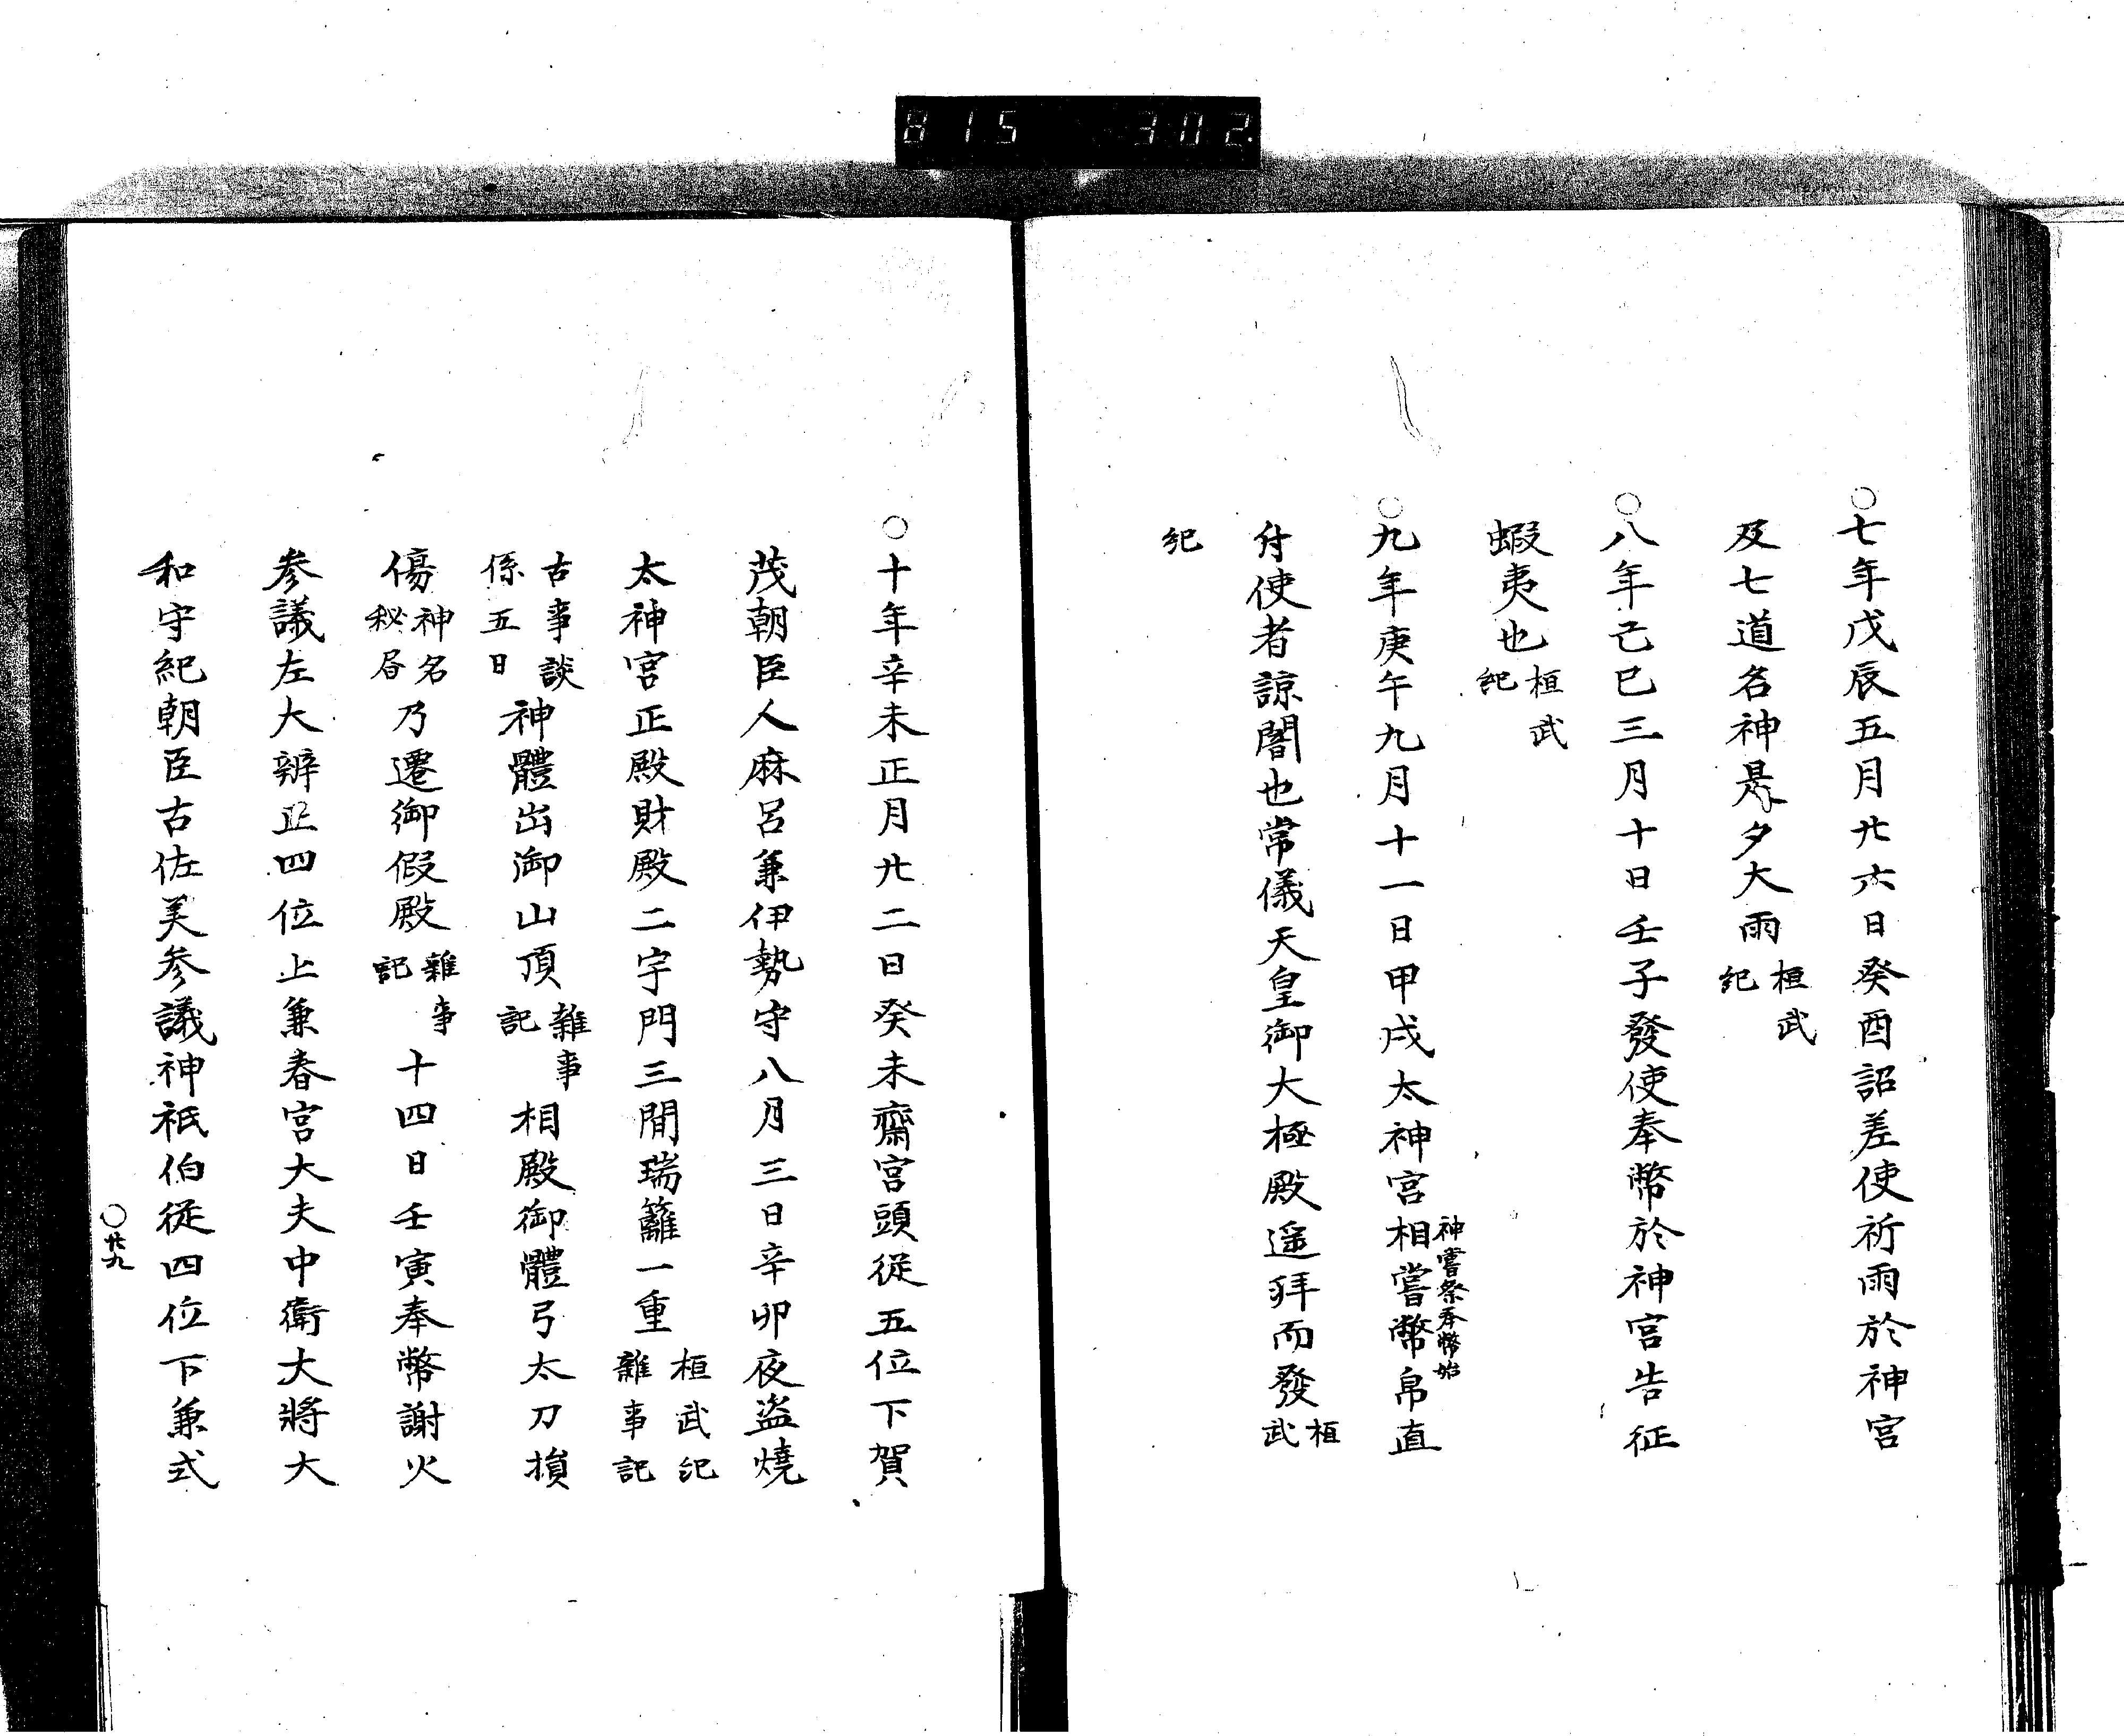 815 302
○七年戊辰五月廿六日癸酉詔差使祈雨於神宮
及七道名神是夕大雨桓武紀
○八年己巳三月十日壬子發使奉幣於神宮告征
蝦夷也桓武紀
○九年庚午九月十一日甲戌太神宮相嘗幣帛直
神嘗祭奉幣始
付使者諒闇也常儀天皇御大極殿遥拜而發桓武
紀
○十年辛未正月廿二日癸未齋宮頭從五位下賀
茂朝臣人麻呂兼伊勢守八月三日辛卯夜盗燒
太神宮正殿財殿二宇門三間瑞籬一重桓武紀雜事記
古事談係五日神體出御山頂雜事記相殿御體弓太刀損
傷神名秘局乃遷御假殿雜事記十四日壬寅奉幣謝火
参議左大辨正四位上兼春宮大夫中衛大將大
和守紀朝臣古佐美参議神祇伯從四位下兼式
○廿九